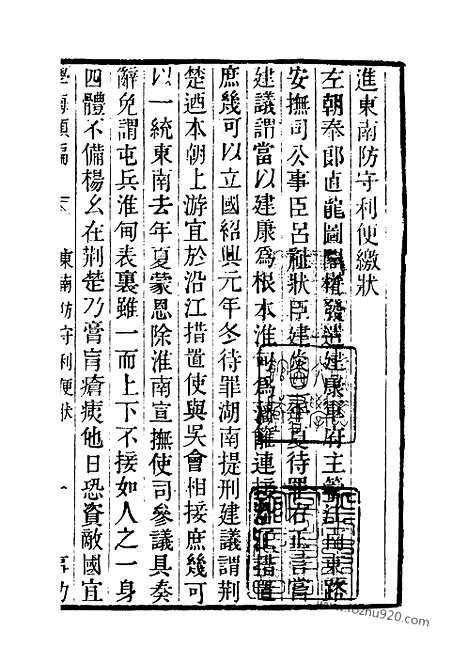 進東南防守利便繳狀
左朝奉郎直龍圖閣權發遣建康軍府主管江南東路
安撫司公事臣呂祉狀臣建炎四年夏待罪右正言嘗
建議謂當以建康為根本淮甸為藩籬連接沿江措置
庶幾可以立國紹興元年冬待罪湖南提刑建議謂荆
楚迺本朝上游宜於沿江措置使與吳會相接庶幾可
以一統東南去年夏蒙恩除淮南宣撫使司參議具奏
辭免謂屯兵淮甸表裏雖一而上下不接如人之一身
四體不備楊幺在荆楚乃膏肓瘡痍他日恐資敵國宜
東南防守利便狀 一
www.1ozhu920.com